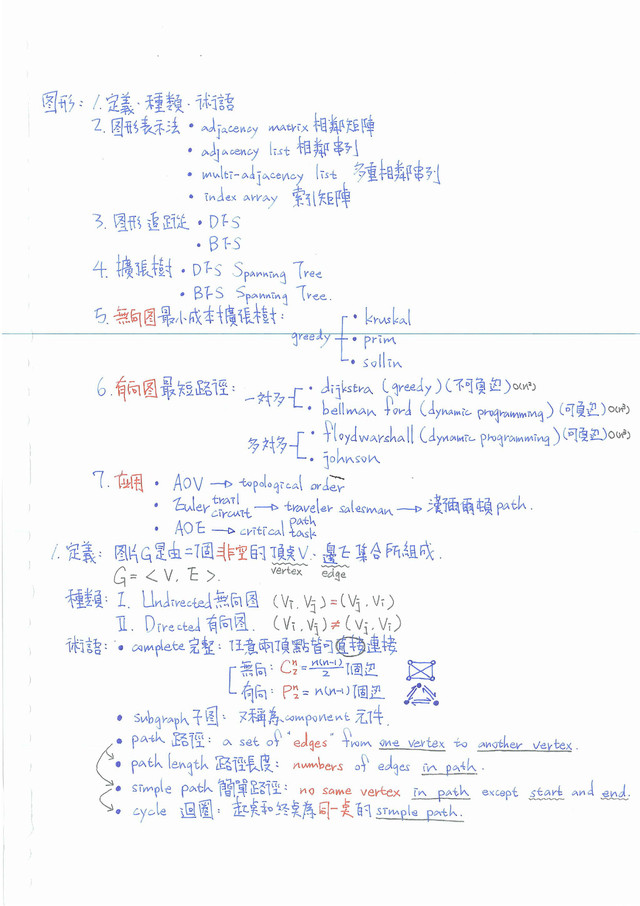 图形: 1. 定義·種類·術語
2. 图形表示法 • adjacency matrix 相鄰矩陣
• adjacency list 相鄰串列
• multi-adjacency list 多重相鄰串列
• index array 索引矩陣
3. 图形追蹤 • DFS
• BFS
4. 擴張樹 • DFS Spanning Tree
• BFS Spanning Tree.
5. 無向图最小成本擴張樹: greedy • kruskal
• prim
• sollin
6. 有向图最短路徑: 一对多 • dijkstra (greedy) (不可負边) O(n²)
• bellman ford (dynamic programming) (可負边) O(n³)
多对多 • floydwarshall (dynamic programming) (可負边) O(n³)
• johnson
7. 应用 • AOV → topological order
• Euler trail circuit → traveler salesman → 漢彌爾頓 path.
• AOE → critical path task
1. 定義: 图片G是由二個非空的頂点V、邊E集合所組成.
vertex edge
G = < V, E >.
種類: I. Undirected 無向图 (Vi, Vj) = (Vj, Vi)
II. Directed 有向图. (Vi, Vj) ≠ (Vj, Vi)
術語: • complete 完整: 任意兩頂點皆可直接連接
無向: C₂ⁿ = n(n-1)/2 個边
有向: P₂ⁿ = n(n-1) 個边
• subgraph 子图: 又稱為component 元件.
• path 路徑: a set of "edges" from one vertex to another vertex.
• path length 路徑長度: numbers of edges in path.
• simple path 簡單路徑: no same vertex in path except start and end.
• cycle 迴圈: 起点和終点為同一点的 simple path.